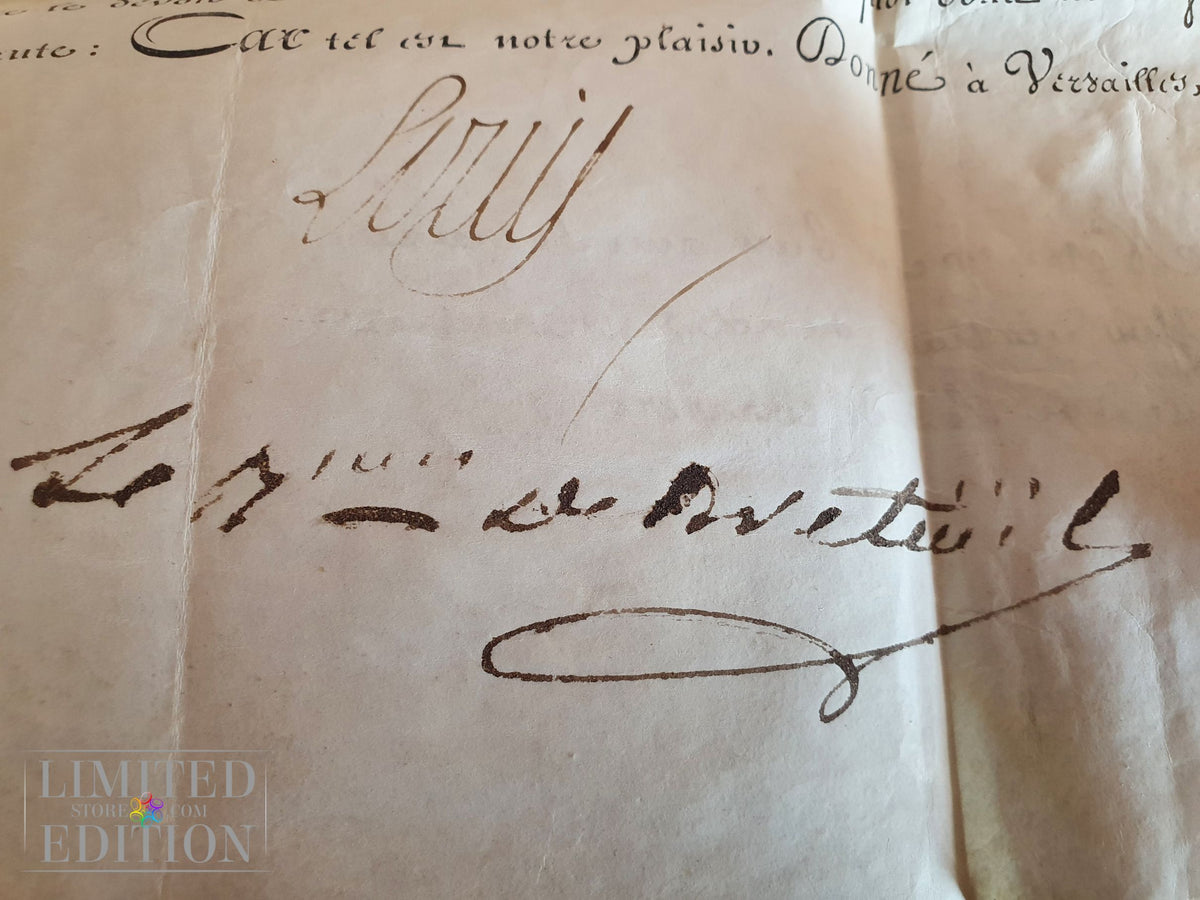 te devoir de
ente : Car tel est notre plaisir. Donné à Versailles,
Louis
Le Bon de Breteüil
LIMITED
STORE COM
EDITION